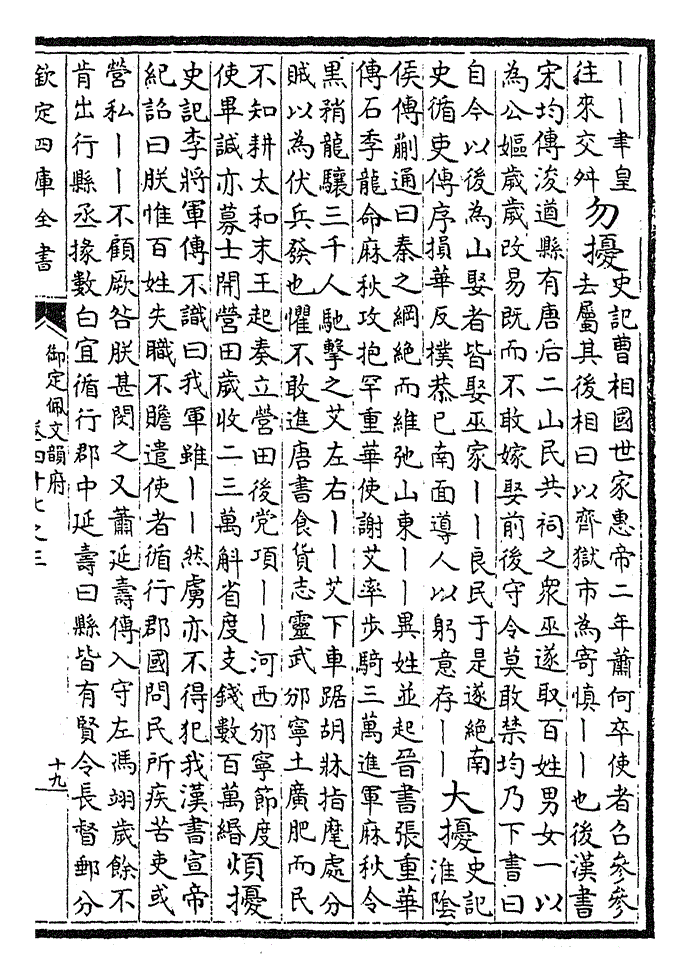 ｜｜聿皇
往來交舛
勿擾
史記曹相國世家惠帝二年蕭何卒使者召參參
去屬其後相曰以齊獄市為寄慎｜｜也後漢書
宋均傳浚遒縣有唐后二山民共祠之衆巫遂取百姓男女一以
為公嫗歲歲改易既而不敢嫁娶前後守令莫敢禁均乃下書曰
自今以後為山娶者皆娶巫家｜｜良民于是遂絕南
史循吏傳序損華反樸恭已南面導人以躬意存｜｜
大擾
史記
淮陰
侯傳蒯通曰秦之綱絕而維弛山東｜｜異姓並起晉書張重華
傳石季龍命麻秋攻抱罕重華使謝艾率步騎三萬進軍麻秋令
黑矟龍驤三千人馳擊之艾左右｜｜艾下車踞胡牀指麾處分
賊以為伏兵發也懼不敢進唐書食貨志靈武邠寧土廣肥而民
不知耕太和末王起奏立營田後党項｜｜河西邠寧節度
使畢諴亦募士開營田歲收二三萬斛省度支錢數百萬緡
煩擾
史記李將軍傳不識曰我軍雖｜｜然虜亦不得犯我漢書宣帝
紀詔曰朕惟百姓失職不贍遣使者循行郡國問民所疾苦吏或
營私｜｜不顧厥咎朕甚閔之又蕭延壽傳入守左馮翊歲餘不
肯出行縣丞掾數白宜循行郡中延壽曰縣皆有賢令長督郵分
欽定四庫全書
御定佩文韻府
卷四十七之三
十九